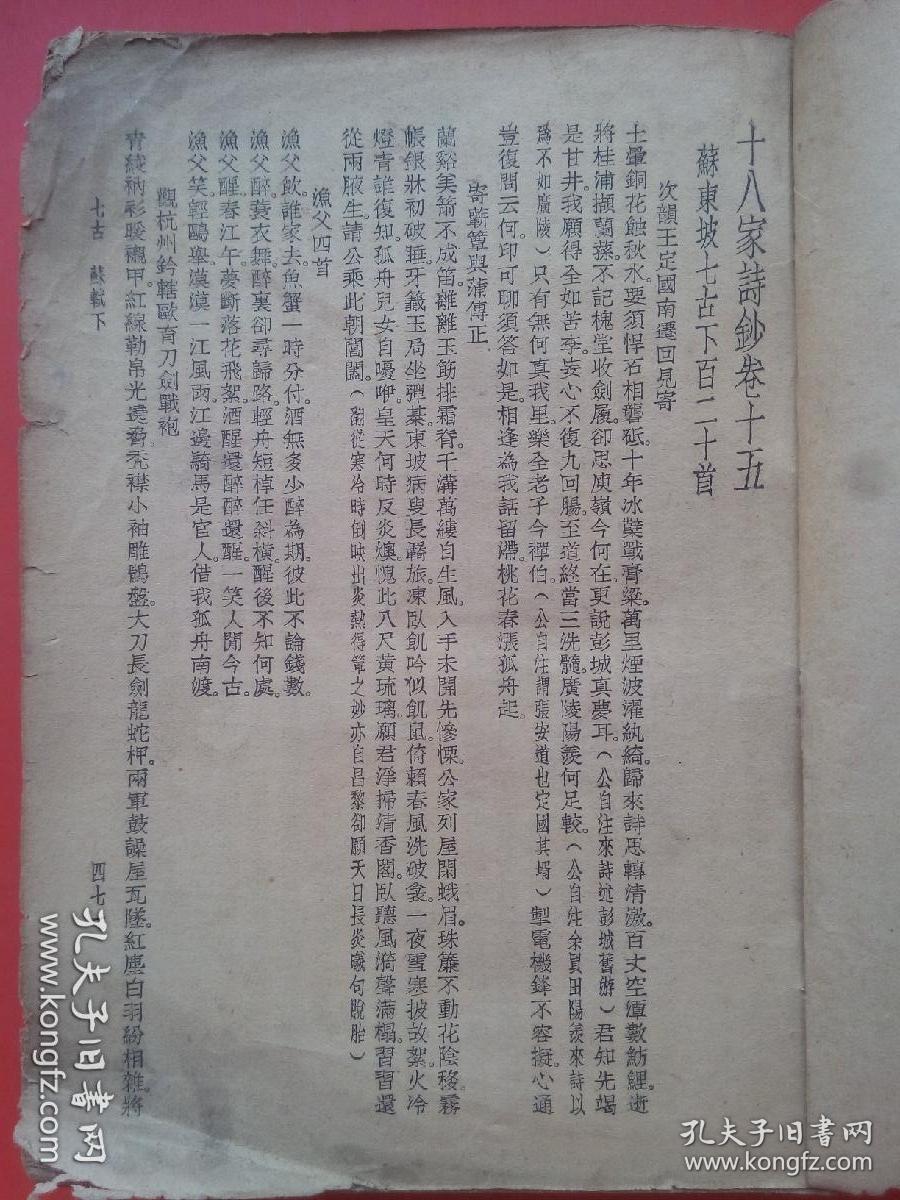 十八家詩鈔卷十五
蘇東坡七古下百二十首
次韻王定國南遷回見寄
土暈銅花蝕秋水。要須悍石相礱砥。十年冰蘗戰膏粱。萬里煙波濯紈綺。歸來詩思轉清激。百丈空潭數魴鯉。逝
將桂浦擷蘭蓀。不記槐堂收劍履。卻思庾嶺今何在。更說彭城真夢耳。(公自注來詩述彭城舊游)君知先竭
是甘井。我願得全如苦李。妄心不復九回腸。至道終當三洗髓。廣陵陽羨何足較。(公自注余買田陽羨來詩以
為不如廣陵)只有無何真我里。樂全老子今禪伯。(公自注謂張安道也定國其壻)掣電機鋒不容擬。心通
豈復問云何。印可聊須答如是。相逢為我話留滯。桃花春漲孤舟起。
寄蘄簟與蒲傳正
蘭谿美箭不成笛。離離玉筋排霜脊。千溝萬縷自生風。入手未開先慘慄。公家列屋閑蛾眉。珠簾不動花陰移。霧
帳銀牀初破睡。牙籤玉局坐彈棊。東坡病叟長羇旅。凍臥飢吟似飢鼠。倚賴春風洗破衾。一夜雪寒披故絮。火冷
燈青誰復知。孤舟兒女自嚘咿。皇天何時反炎燠。愧此八尺黃琉璃。願君淨掃清香閣。臥聽風漪聲滿榻。習習還
從兩腋生。請公乘此朝閶闔。(翻從寒冷時倒映出炎熱得簟之妙亦自昌黎卻願天日長炎曦句脫胎)
漁父四首
漁父飲。誰家去。魚蟹一時分付。酒無多少醉為期。彼此不論錢數。
漁父醉。蓑衣舞。醉裏卻尋歸路。輕舟短棹任斜橫。醒後不知何處。
漁父醒。春江午。夢斷落花飛絮。酒醒還醉醉還醒。一笑人間今古。
漁父笑。輕鷗舉。漠漠一江風雨。江邊騎馬是官人。借我孤舟南渡。
觀杭州鈐轄歐育刀劍戰袍
青綾衲衫暖襯甲。紅線勒帛光遶脅。禿襟小袖雕鶻盤。大刀長劍龍蛇柙。兩軍鼓譟屋瓦墜。紅塵白羽紛相雜。將
七古 蘇軾下
四七
孔夫子旧书网
孔夫子旧书网
www.kongfz.com